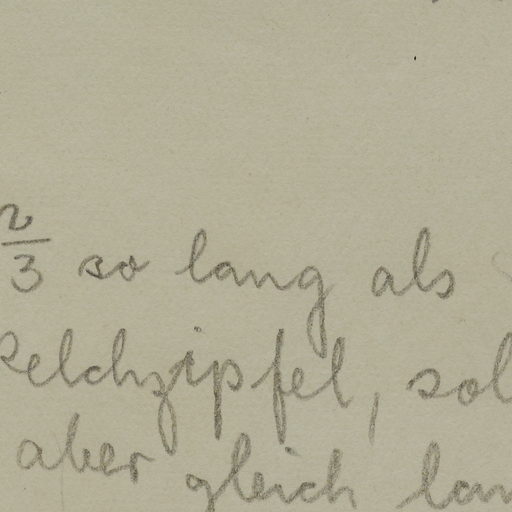 2/3 so lang als
Kelchzipfel, sol
aber gleich lan